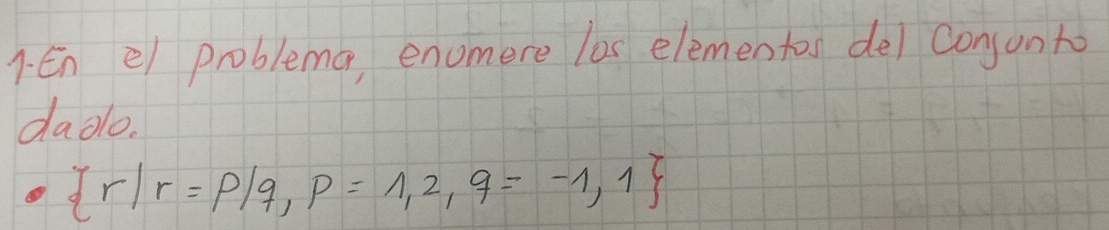 1.En el problema, enumere los elementos del Conjunto
dado.
• {r/r = p/q, p = 1,2, q = -1, 1}